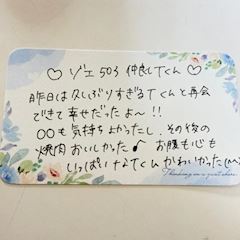 ♡ ゾエ503 仲良しTくん ♡
昨日は久しぶりすぎるTくんと再会
できて幸せだったよ〜!!
〇〇も気持ちよかったし、その後の
焼肉おいしかった♪ お腹も心も
いっぱい Tくんかわいかった(^^)
Thinking on a quiet shore.